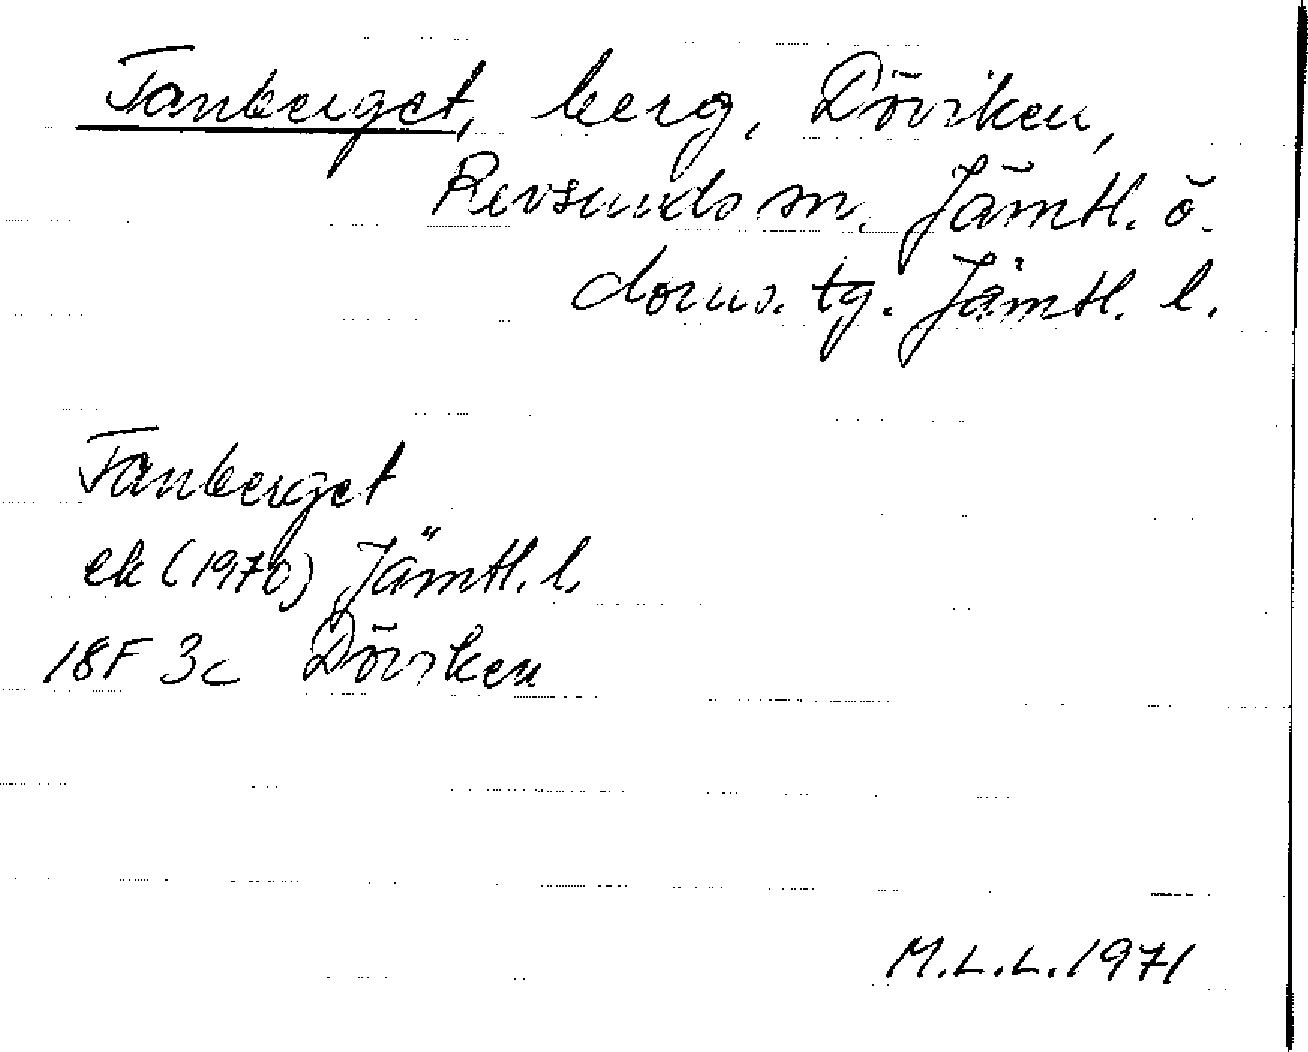 Tanberget, berg, Döviken,
Revsunds sn. Jämtl. ö.
doms. tg. Jämtl. l.
Tanberget
ek (1970) Jämtl. l.
18F 3c Döviken
M.L.L. 1971